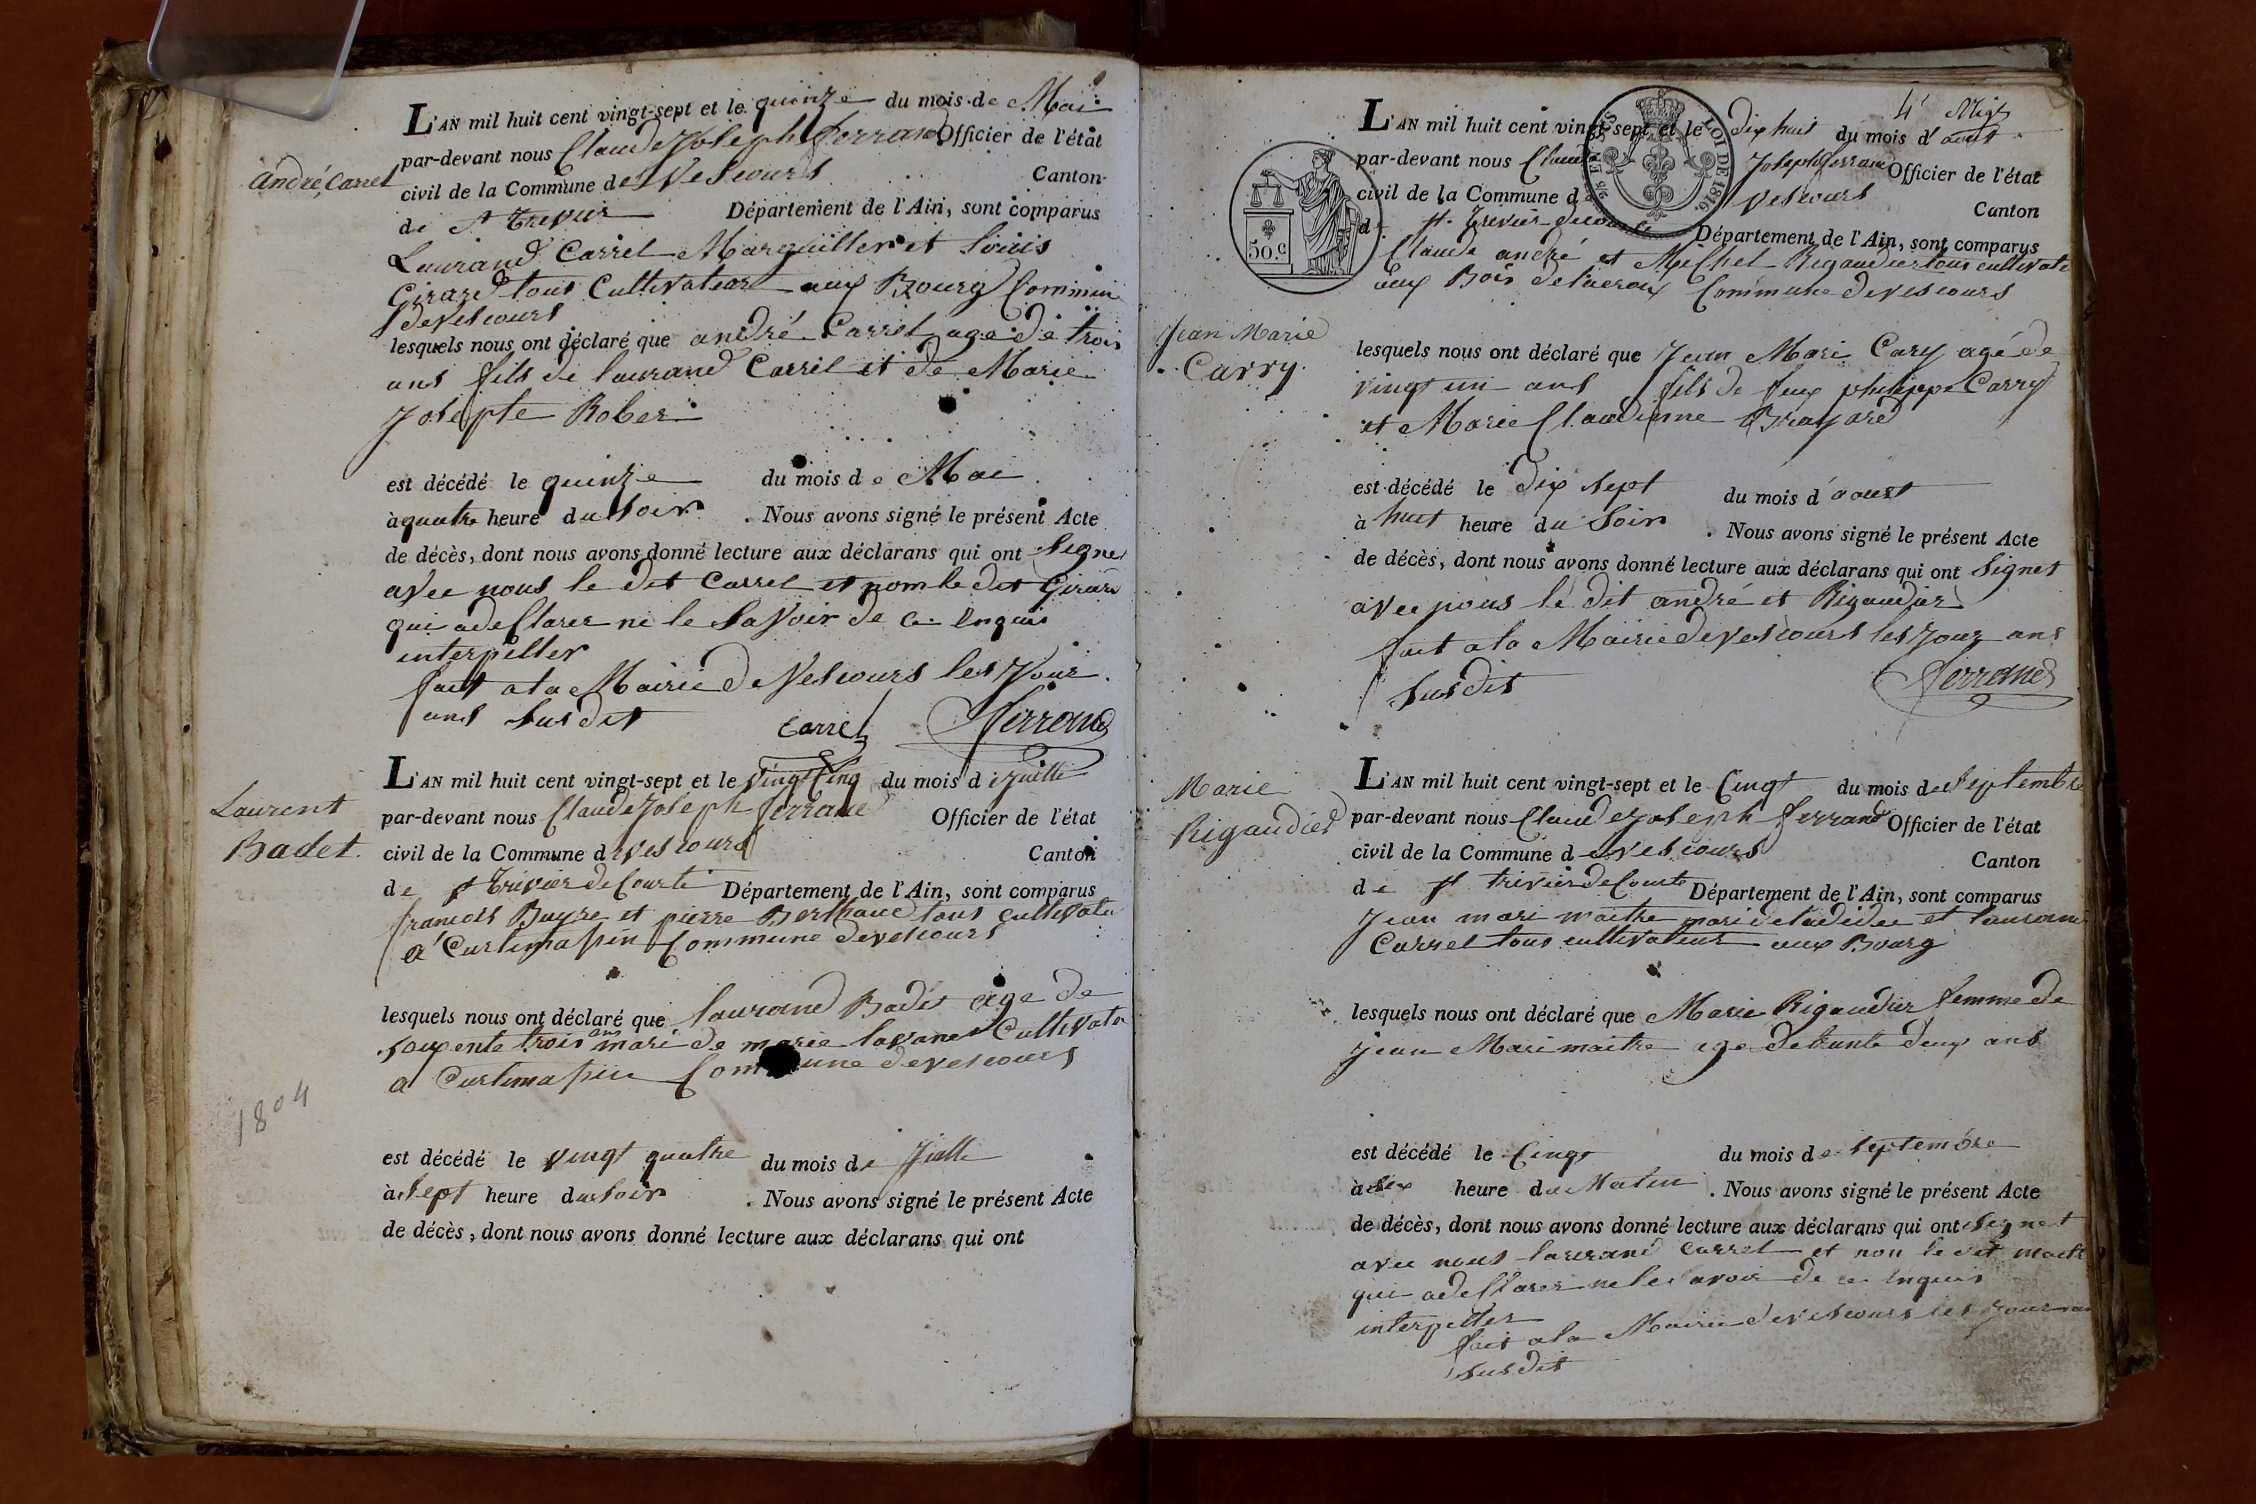 L'AN mil huit cent vingt-sept et le quinze du mois de Mai
par-devant nous Claude Joseph ferrand Officier de l'état
andré Carrel
civil de la Commune de Vescours Canton
de st trevier Département de l'Ain, sont comparus
Laurand Carrel Marguiller et louis
Girard tous Cultivateur aux Bourg Commune
de vescours
lesquels nous ont déclaré que andré Carrel age de trois
ans fils de laurand Carrel et de Marie
Josepte Rober
est décédé le quinze du mois de Mai
à quatre heure du soir . Nous avons signé le présent Acte
de décès, dont nous avons donné lecture aux déclarans qui ont signes
avec nous le dit Carrel et non le dit Girard
qui a desllarer ne le savoir de ce enquis
interpeller
fait a la Mairie de Vescours les Jour
ans susdit Carrel ferrand
L'AN mil huit cent vingt-sept et le vingt Cinq du mois de Juille
Laurent
Badet
par-devant nous Claude Joseph ferrand Officier de l'état
civil de la Commune de vescours Canton
de st trivier de Courte Département de l'Ain, sont comparus
francois Buyre et pierre Berthaud tous cultivate
a Curtimasin Commune de vescours
lesquels nous ont déclaré que laurand Badet age de
soixente trois ans mari de marie lavane Cultivate
a Curtimasin Commune de vescours
1804
est décédé le vingt quatre du mois de Juille
à sept heure du soir . Nous avons signé le présent Acte
de décès, dont nous avons donné lecture aux déclarans qui ont
4e
LOI DE 1816
50.c
L'AN mil huit cent vingt-sept et le dix huit du mois d'aout
par-devant nous Claude Joseph ferrand Officier de l'état
civil de la Commune d vescours Canton
d st. trevier de courte Département de l'Ain, sont comparus
Claude andré et Michel Rigaudier tous cultivate
aux Bois de lacroix Commune de vescours
Jean Marie
Carry
lesquels nous ont déclaré que Jean Mari Cary agé de
vingt un ans fils de feux philippe Carry
et Marie Claudinne Brayard
est décédé le dix sept du mois d'aoust
à huit heure du Soir . Nous avons signé le présent Acte
de décès, dont nous avons donné lecture aux déclarans qui ont signet
avec nous le dit andré et Rigaudier
fait a la Mairie de vescours les Jour ans
susdit ferrand
L'AN mil huit cent vingt-sept et le Cinq du mois de Septembre
Marie
Rigaudier
par-devant nous Claude Joseph ferrand Officier de l'état
civil de la Commune de vescours Canton
de st trivier de Courte Département de l'Ain, sont comparus
Jean mari maitre mari de ladidee et laurand
Carrel tous cultivateur aux Bourg
lesquels nous ont déclaré que Marie Rigaudier femme de
Jean Mari maitre age de trante deux ans
est décédé le Cinq du mois de septembre
à six heure du Matin . Nous avons signé le présent Acte
de décès, dont nous avons donné lecture aux déclarans qui ont signet
avec nous laurand Carrel et non le dit maitre
qui a desllarer ne le savoir de ce enquis
interpeller
fait a la Mairie de vescours les Jour
susdit